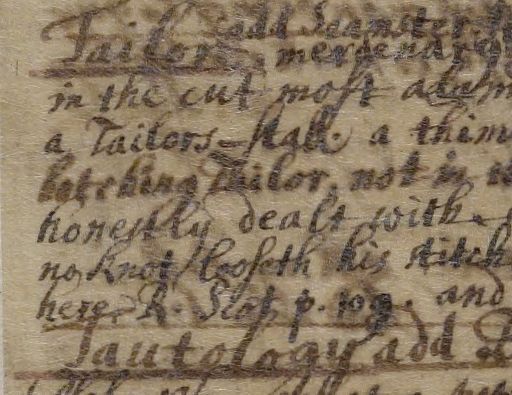 add Seamster
Tailor. mercenary
in the cut most
a Tailors-stall. a thim
botching Tailor. not in
honestly dealt with.
no knot looseth his stitch
here. R. Scot p. and
Tautology add